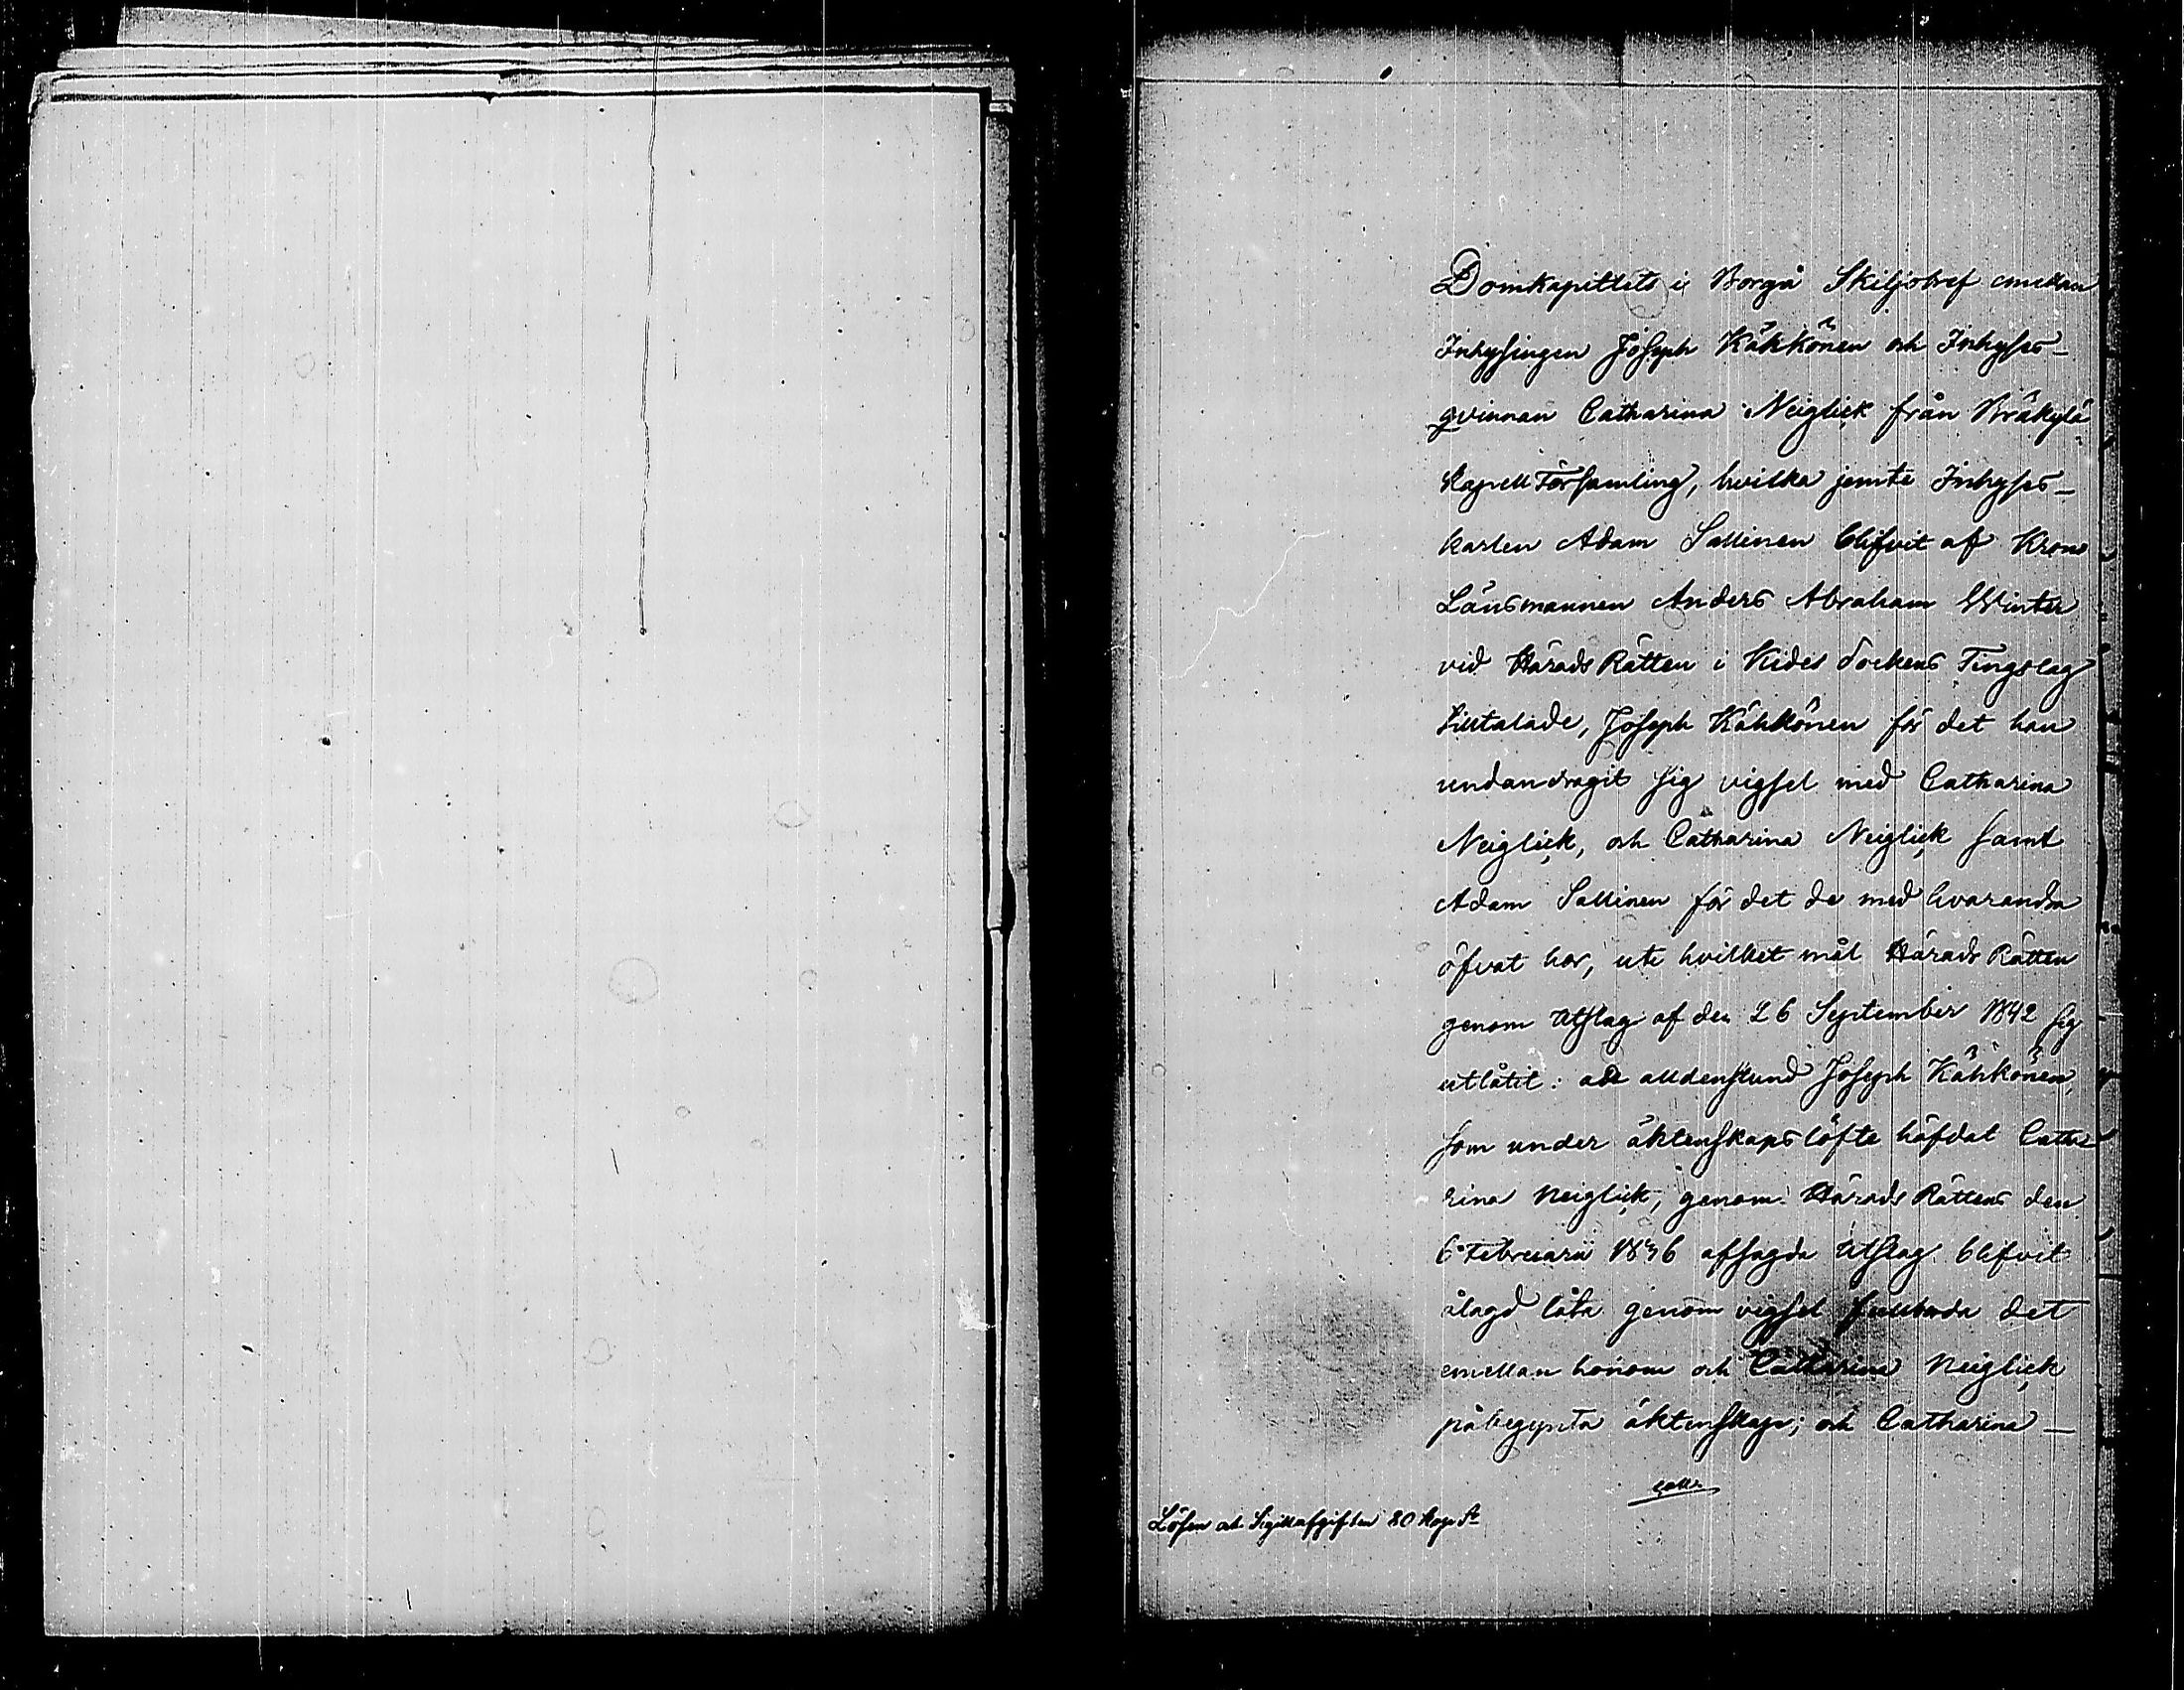 Domkapitlets i Borgå Skiljobref emellan
Inhysingen Joseph Kähkönen och Inhyses-
qvinnan Catharina Neiglick från Bräkylä
Kapell Församling, hvilka jemte Inhyses-
karlen Adam Sallinen blifvit af Krono
Länsmannen Anders Abraham Winter
vid Härads Rätten i Kides Sockens Tingslag
tilltalade, Joseph Kähkönen för det han
undandragit sig vigsel med Catharina
Neiglick, och Catharina Neiglick samt
Adam Sallinen för det de med hvarandra
öfvat hor, uti hvilket mål Härads Rätten
genom Utslag af den 26 September 1842 sig
utlåtit: att alldenstund Joseph Kähkönen,
som under äktenskapslöfte häfdat Catha
rina Neiglick, genom Härads Rättens den
6 Februarii 1836 afsagda Utslag blifvit
ålagd låta genom vigsel fullborda det
emellan honom och Catharina Neiglick
påbegynta äktenskap; och Catharina -
Lösen och Sigillafgiften 80 kop. Sr